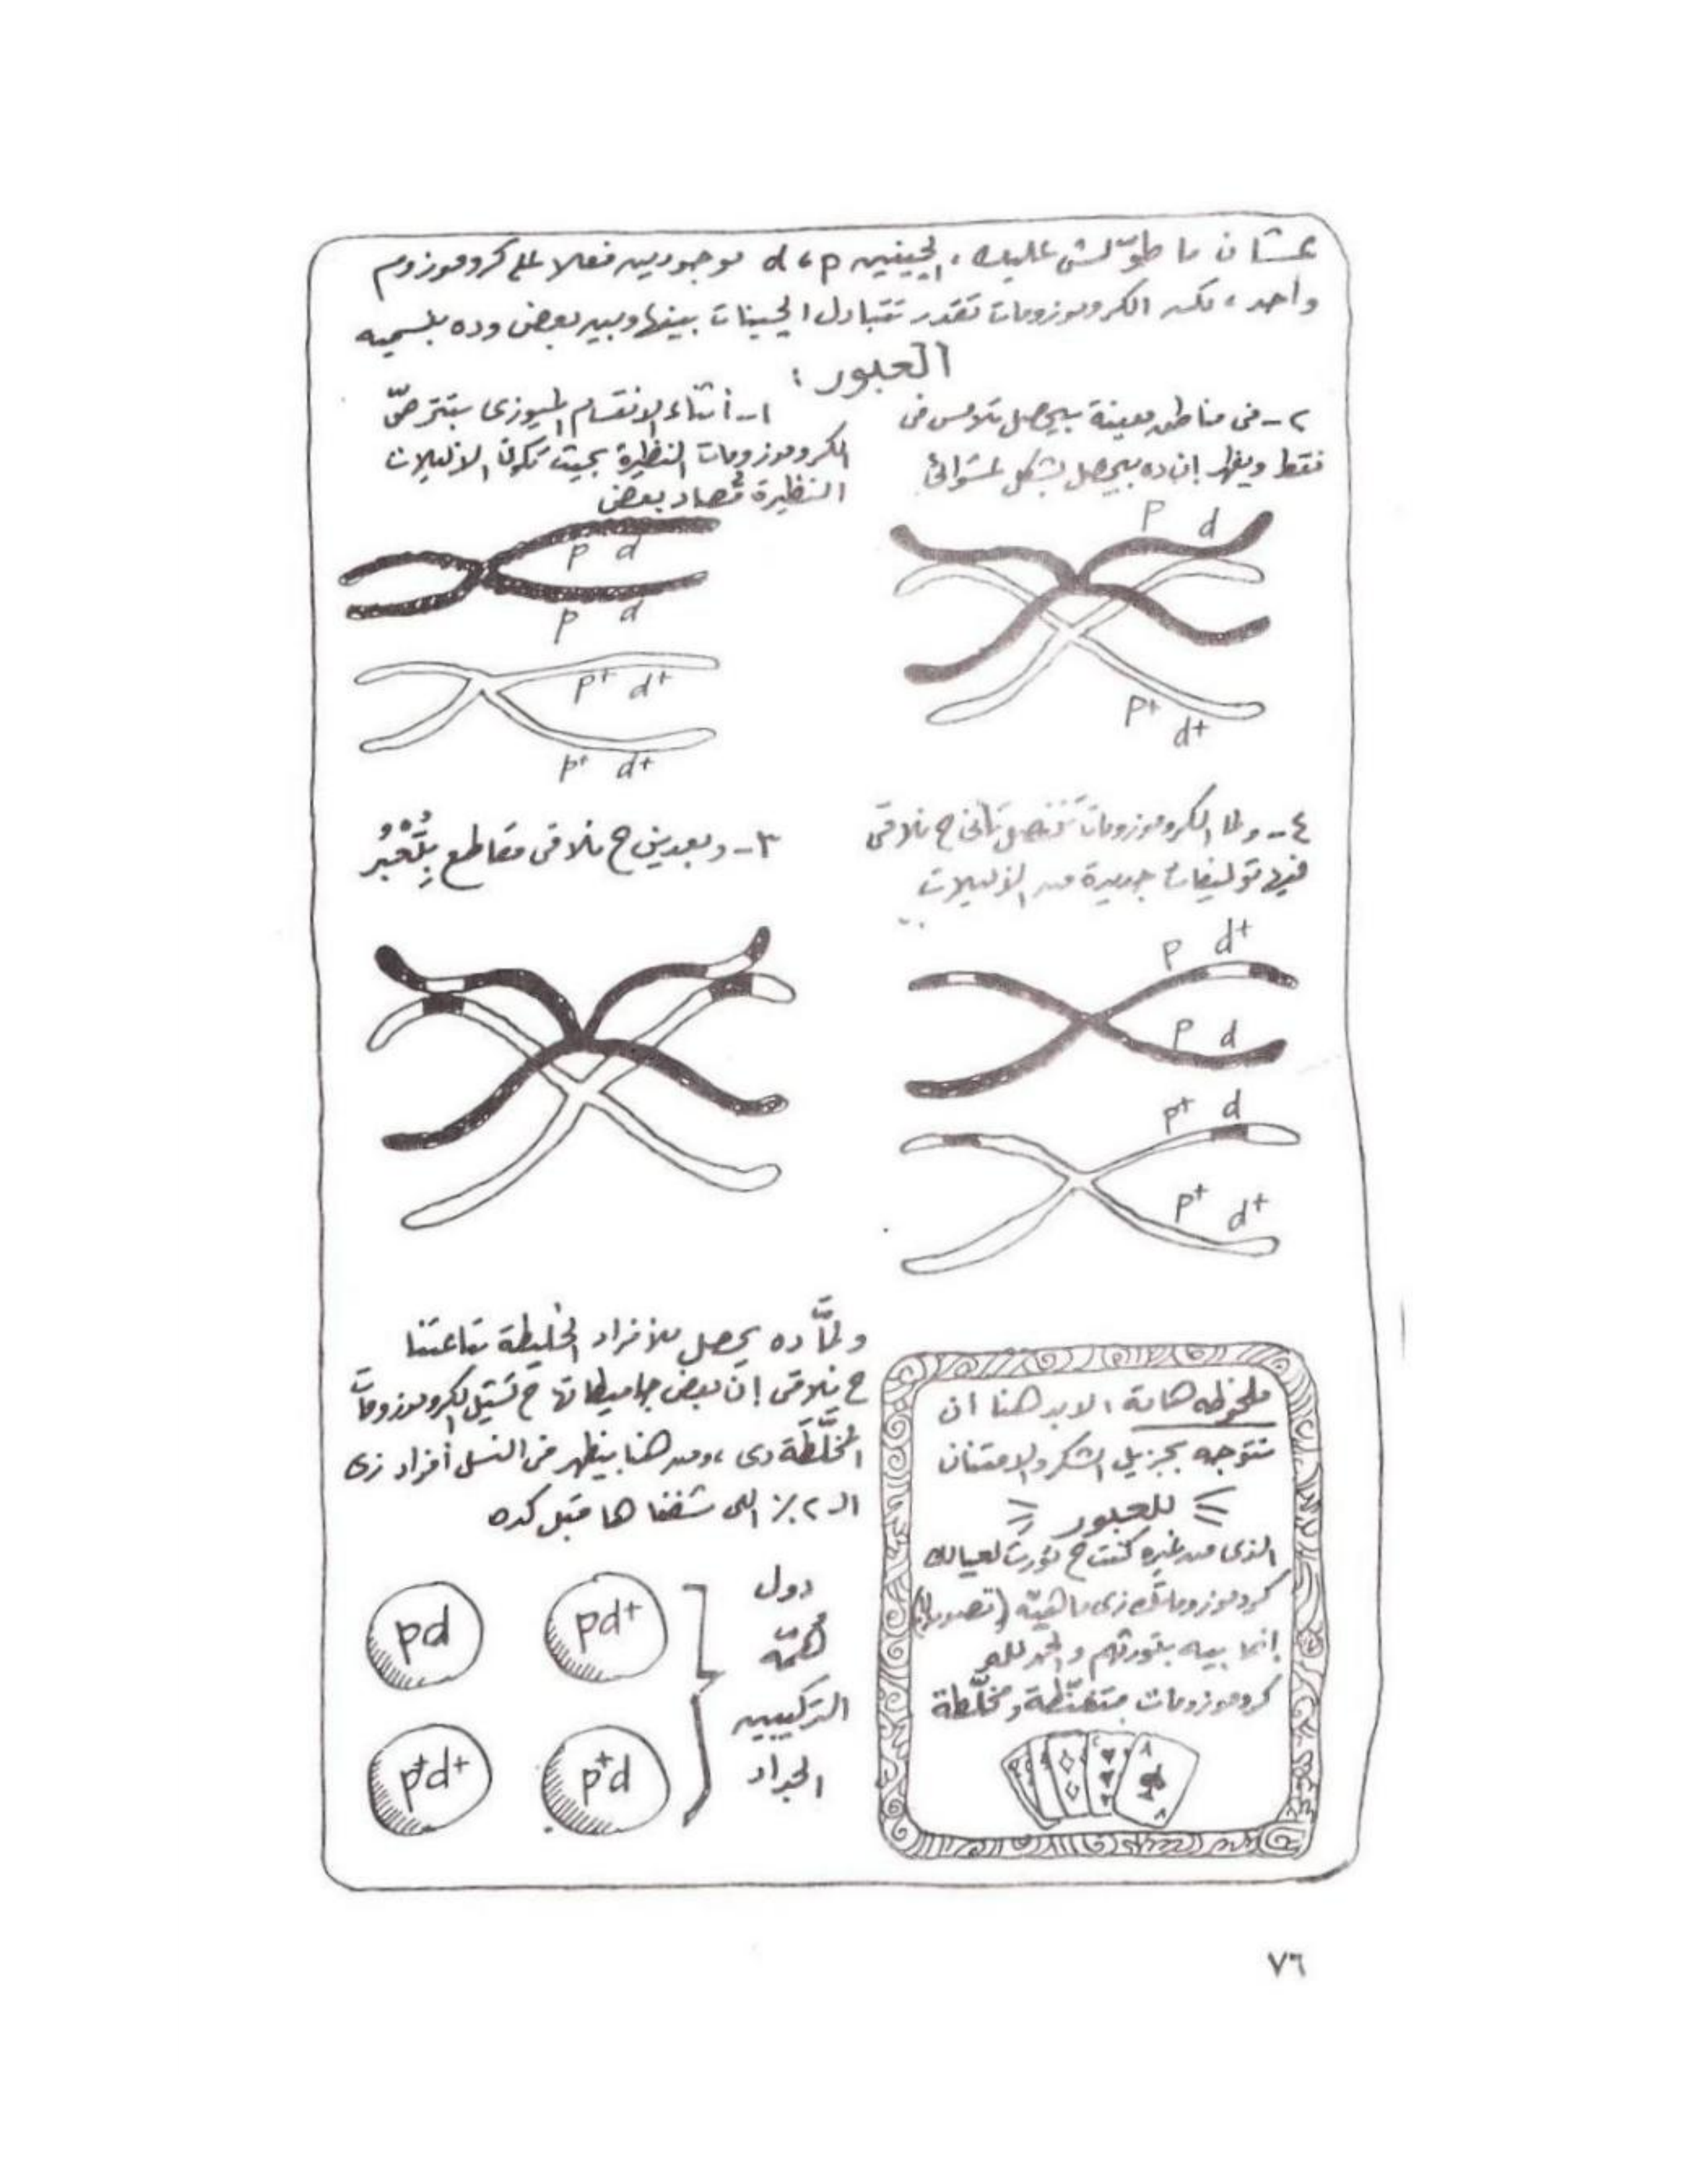 عشان ما طوّلش عليك، الجينين p ، d موجودين فعلا على كروموزوم
واحد، لكن الكروموزومات تقدر تتبادل الجينات بينها وبين بعض وده بنسميه
العبور :
١- أثناء الانقسام الميوزى بتترصّ
الكروموزومات النظيرة بحيث تكون الأليلات
النظيرة قصاد بعض
p d
p d
p+ d+
p+ d+
٢- فى مناطق معينة بيحصل تلامس فى
فقط ويظهر إن ده بيحصل بشكل عشوائى
p d
p+
d+
٣- وبعدين ح نلاقى مقاطع بتُعبُر
٤- ولما الكروموزومات تنفصل تانى ح نلاقى
فيها توليفات جديدة من الأليلات ..
p d+
p d
p+ d
p+ d+
ولمّا ده يحصل للأفراد الخليطة بتاعتنا
ح نلاقى إن بعض جاميطاتها ح تشيل الكروموزومات
المخلَّطَة دى، ومن هنا بيظهر فى النسل أفراد زى
الـ ٢٪ اللى شفناها قبل كده
pd
pd+
p+d+
p+d
دول
هُمّه
التركيبين
الجداد
ملحوظه هامة، لابد هنا ان
نتوجه بجزيل الشكر والامتنان
للعبور
الذى من غيره كنت ح تورث لعيالك
كروموزوماتك زى ما هيّه (تصور!)
إنما بيه بتورثهم والحمد لله
كروموزومات متفنّطة ومخلَّطة
٧٦